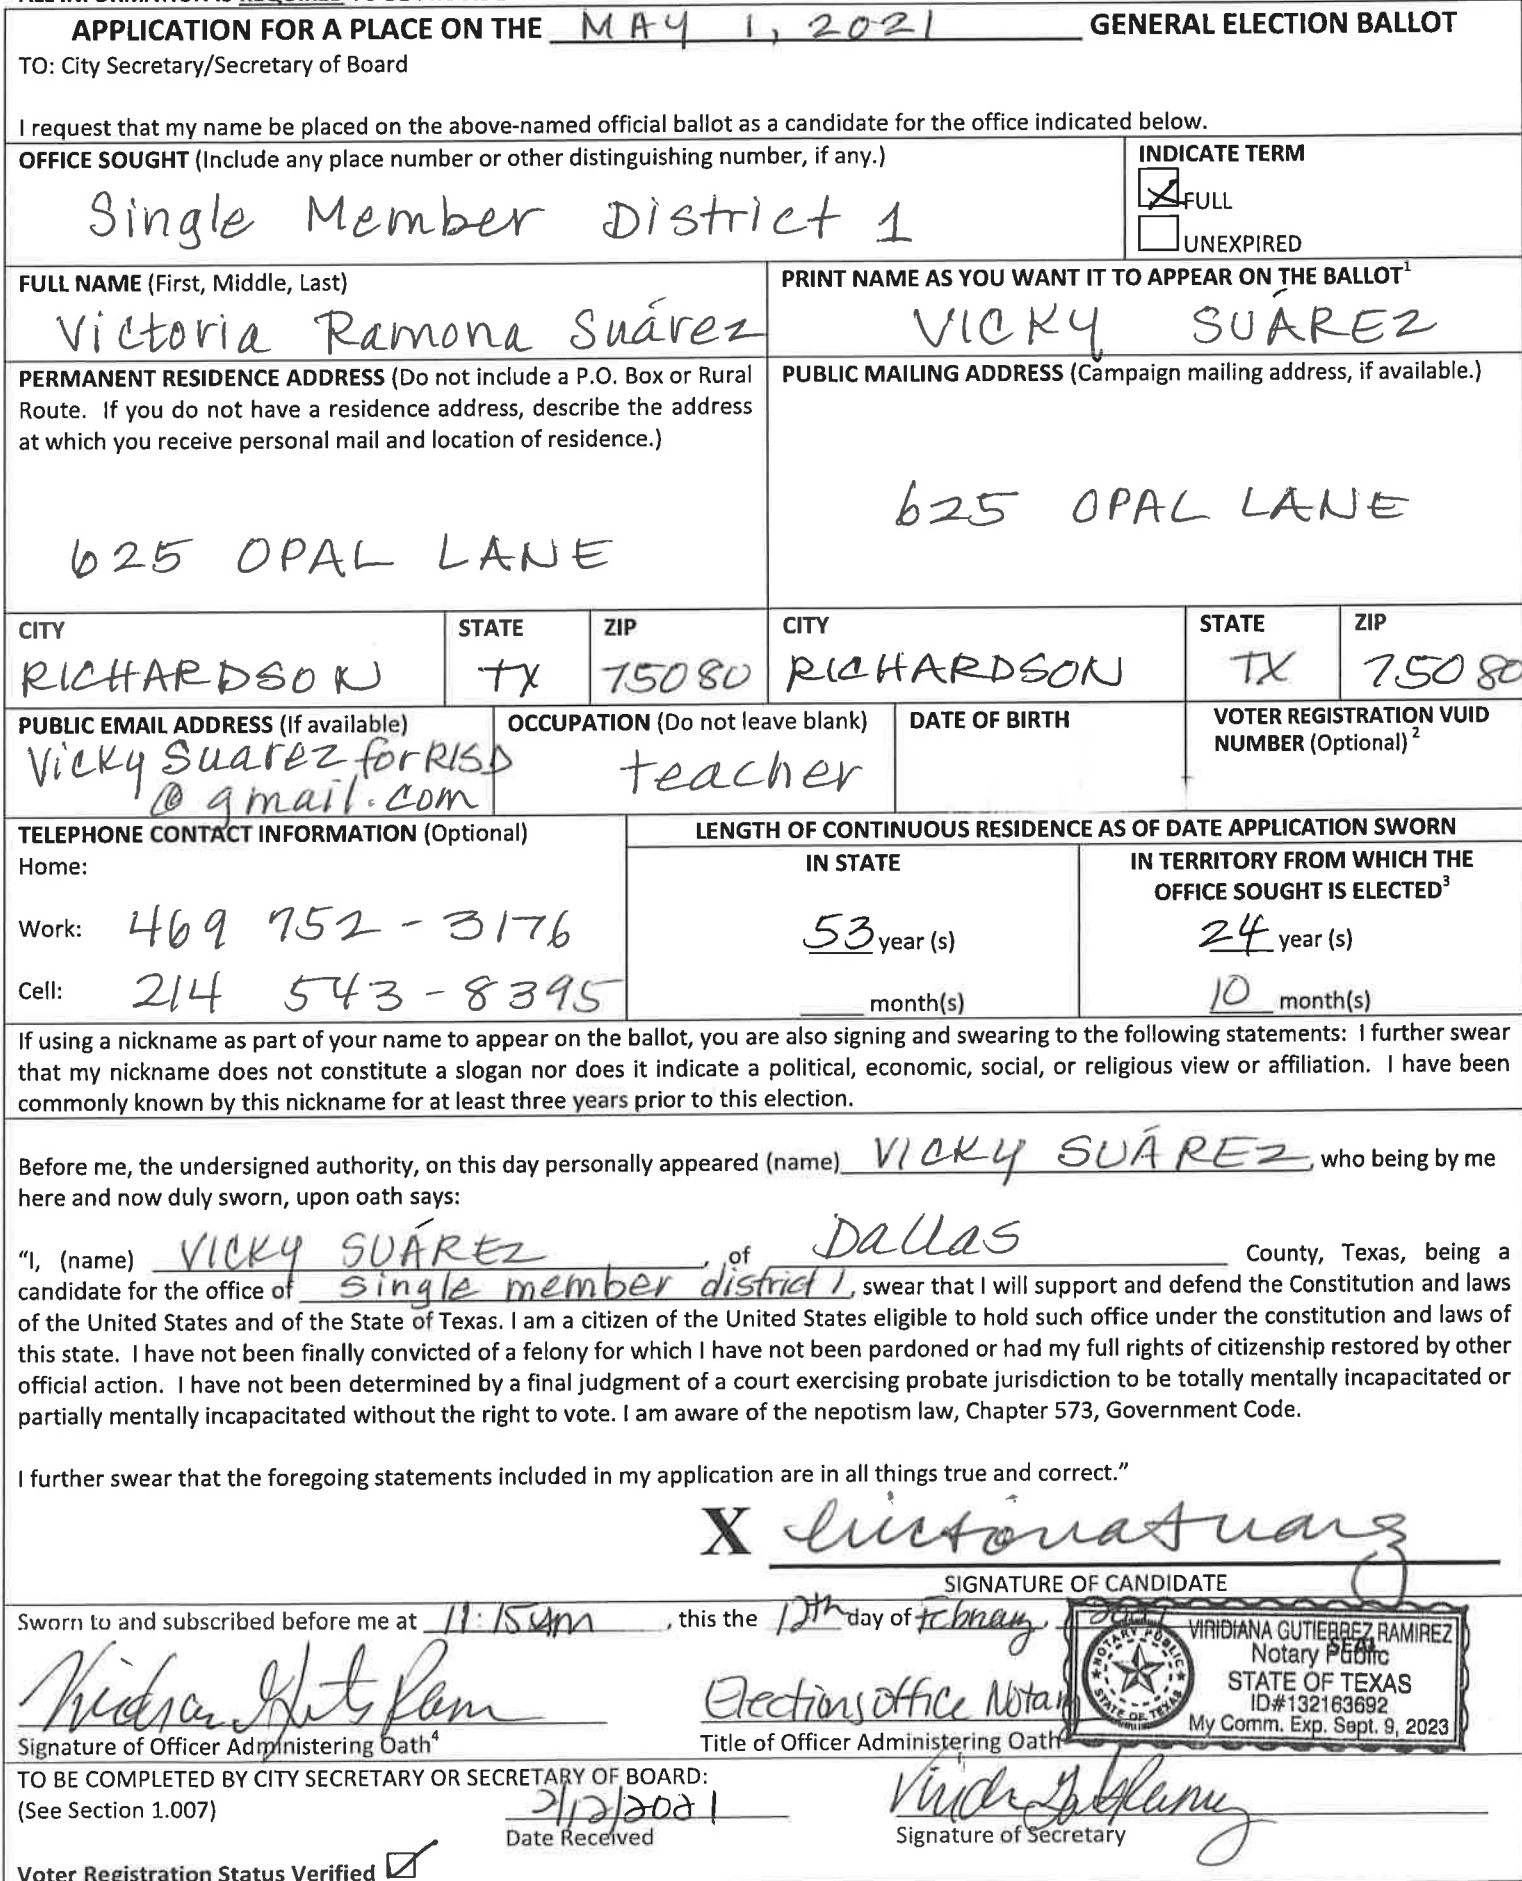 APPLICATION FOR A PLACE ON THE MAY 1, 2021 GENERAL ELECTION BALLOT
TO: City Secretary/Secretary of Board
I request that my name be placed on the above-named official ballot as a candidate for the office indicated below.
OFFICE SOUGHT (Include any place number or other distinguishing number, if any.)
Single Member District 1
INDICATE TERM
FULL
UNEXPIRED
FULL NAME (First, Middle, Last)
Victoria Ramona Suárez
PRINT NAME AS YOU WANT IT TO APPEAR ON THE BALLOT¹
VICKY SUÁREZ
PERMANENT RESIDENCE ADDRESS (Do not include a P.O. Box or Rural
Route. If you do not have a residence address, describe the address
at which you receive personal mail and location of residence.)
625 OPAL LANE
PUBLIC MAILING ADDRESS (Campaign mailing address, if available.)
625 OPAL LANE
CITY
RICHARDSON
STATE
TX
ZIP
75080
CITY
RICHARDSON
STATE
TX
ZIP
75080
PUBLIC EMAIL ADDRESS (If available)
Vicky Suarez for RISD
@gmail.com
OCCUPATION (Do not leave blank)
teacher
DATE OF BIRTH
VOTER REGISTRATION VUID
NUMBER (Optional) ²
TELEPHONE CONTACT INFORMATION (Optional)
Home:
Work: 469 752-3176
Cell: 214 543-8395
LENGTH OF CONTINUOUS RESIDENCE AS OF DATE APPLICATION SWORN
IN STATE
53 year (s)
month(s)
IN TERRITORY FROM WHICH THE
OFFICE SOUGHT IS ELECTED³
24 year (s)
10 month(s)
If using a nickname as part of your name to appear on the ballot, you are also signing and swearing to the following statements: I further swear
that my nickname does not constitute a slogan nor does it indicate a political, economic, social, or religious view or affiliation. I have been
commonly known by this nickname for at least three years prior to this election.
Before me, the undersigned authority, on this day personally appeared (name) VICKY SUÁREZ, who being by me
here and now duly sworn, upon oath says:
"I, (name) VICKY SUÁREZ, of Dallas County, Texas, being a
candidate for the office of single member district 1, swear that I will support and defend the Constitution and laws
of the United States and of the State of Texas. I am a citizen of the United States eligible to hold such office under the constitution and laws of
this state. I have not been finally convicted of a felony for which I have not been pardoned or had my full rights of citizenship restored by other
official action. I have not been determined by a final judgment of a court exercising probate jurisdiction to be totally mentally incapacitated or
partially mentally incapacitated without the right to vote. I am aware of the nepotism law, Chapter 573, Government Code.
I further swear that the foregoing statements included in my application are in all things true and correct."
X Victoria Suarez
SIGNATURE OF CANDIDATE
Sworn to and subscribed before me at 11:15 am, this the 12th day of February,
VIRIDIANA GUTIERREZ RAMIREZ
SEAL
Notary Public
STATE OF TEXAS
ID#132163692
My Comm. Exp. Sept. 9, 2023
NOTARY PUBLIC
STATE OF TEXAS
Elections office Notary
Signature of Officer Administering Oath⁴
Title of Officer Administering Oath
TO BE COMPLETED BY CITY SECRETARY OR SECRETARY OF BOARD:
(See Section 1.007)
2/12/2021
Date Received
Signature of Secretary
Voter Registration Status Verified